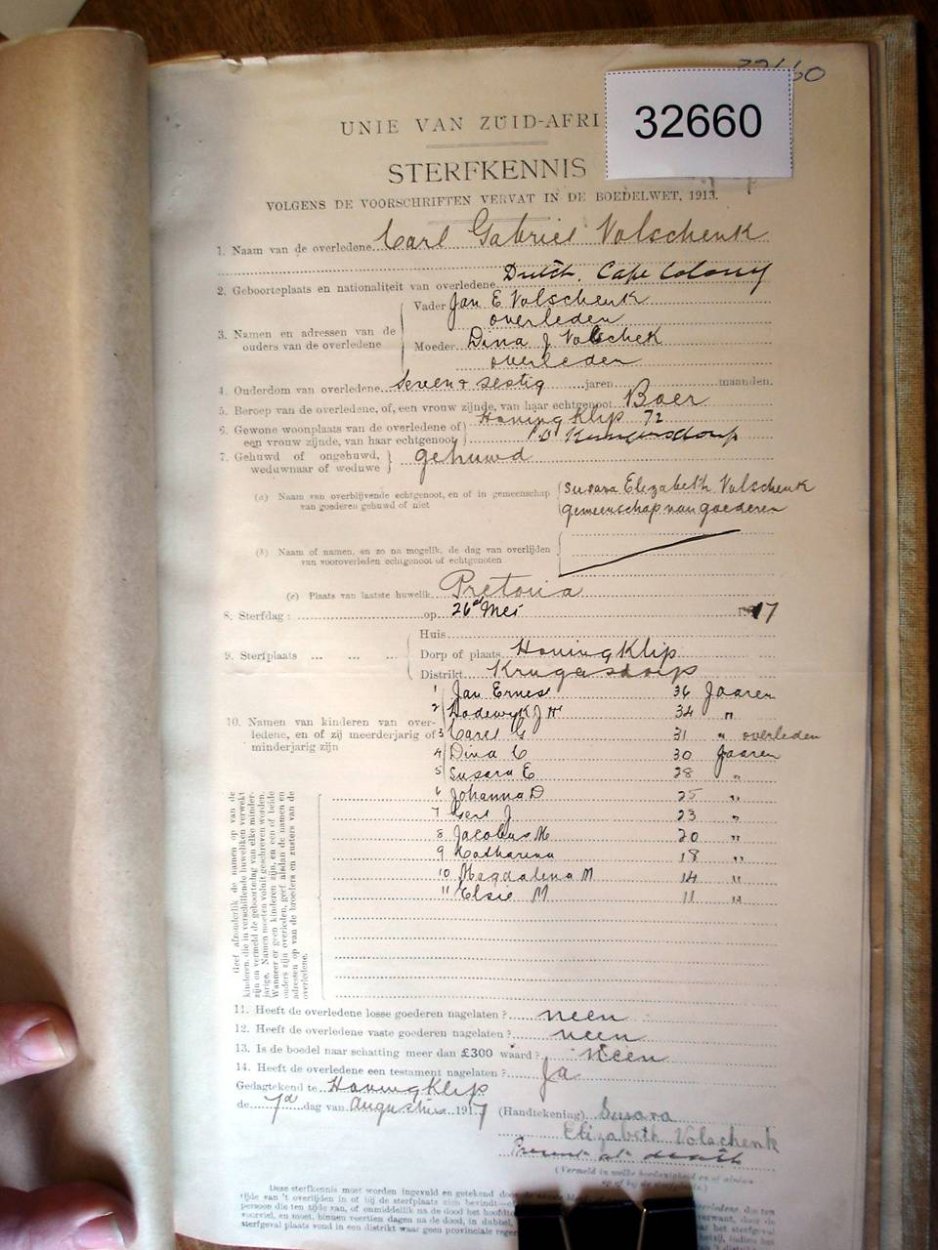 32660
UNIE VAN ZUID-AFRI
STERFKENNIS
VOLGENS DE VOORSCHRIFTEN VERVAT IN DE BOEDELWET, 1913.
1. Naam van de overledene Carl Gabriel Volschenk
2. Geboorteplaats en nationaliteit van overledene Dutch. Cape Colony
3. Namen en adressen van de ouders van de overledene
Vader Jan E Volschenk
overleden
Moeder Dina J Volschek
overleden
4. Ouderdom van overledene seven + sestig jaren maanden.
5. Beroep van de overledene, of, een vrouw zijnde, van haar echtgenoot Boer
6. Gewone woonplaats van de overledene of Honing Klip 72
een vrouw zijnde, van haar echtgenoot Krugersdorp
7. Gehuwd of ongehuwd, gehuwd
weduwnaar of weduwe
(a) Naam van overblijvende echtgenoot, en of in gemeenschap Susara Elizabeth Volschenk
van goederen gehuwd of niet gemeenschap van goederen
(b) Naam of namen, en zo na mogelik, de dag van overlijden
van vooroverleden echtgenoot of echtgenoten
(c) Plaats van laatste huwelik Pretoria
8. Sterfdag: op 26 Mei 17
9. Sterfplaats
Huis
Dorp of plaats Honing Klip
Distrikt Krugersdorp
10. Namen van kinderen van over-
ledene, en of zij meerderjarig of
minderjarig zijn
1 Jan Ernest 36 Jaaren
2 Lodewyk J H 34 "
3 Carel G 31 " overleden
4 Dina C 30 Jaaren
5 Susara E 28 "
6 Johanna D 25 "
7 Gert J 23 "
8 Jacobus M 20 "
9 Katharina 18 "
10 Magdalena M 14 "
11 Elsie M 11 "
Geef afzonderlik de namen op van de
kinderen, die in verschillende huweliken verwekt
zijn en vermeld de geboortedag van elke minder-
jarige. Namen moeten voluit geschreven worden.
Wanneer er geen kinderen zijn, en een of beide
ouders zijn overleden, geef alsdan de namen en
adressen op van de broeders en zusters van de
overledene.
11. Heeft de overledene losse goederen nagelaten? neen
12. Heeft de overledene vaste goederen nagelaten? neen
13. Is de boedel naar schatting meer dan £300 waard? Neen
14. Heeft de overledene een testament nagelaten? Ja
Gedagtekend te Honing Klip
de 7d dag van Augustus 1917 (Handtekening) Susara
Elizabeth Volschenk
Present at death
(Vermeld in welke hoedanigheid en of
Deze sterfkennis moet worden ingevuld en getekend door de